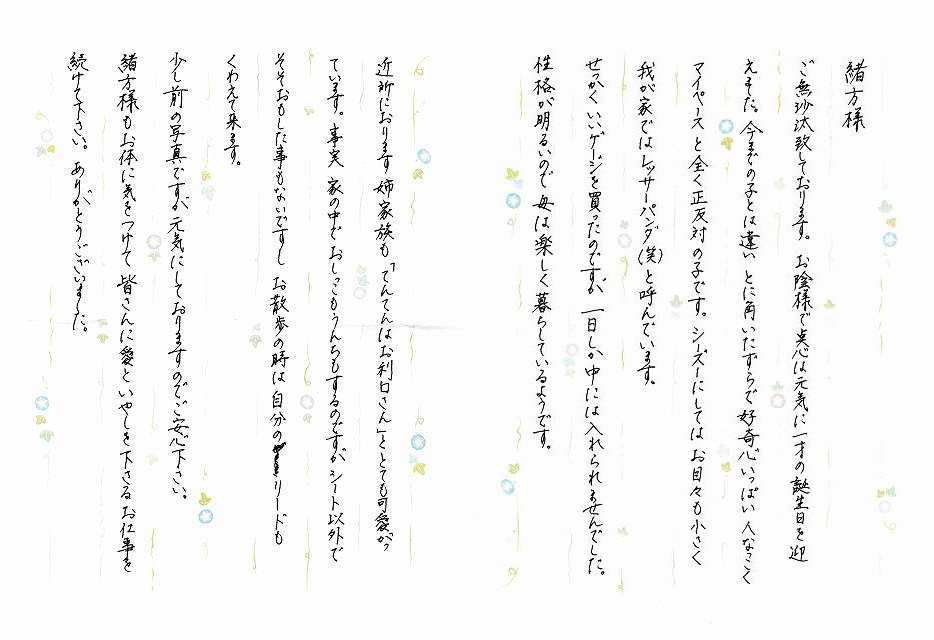 緒方様
ご無沙汰致しております。お陰様で点心は元気に一才の誕生日を迎
えました。今までの子とは違い とに角いたずらで好奇心いっぱい 人なつこく
マイペースと全く正反対の子です。シーズーにしてはお目々も小さく
我が家ではレッサーパンダ(笑)と呼んでいます。
せっかくいいゲージを買ったのですが 一日しか中には入れられませんでした。
性格が明るいので 母は楽しく暮らしているようです。
近所におります 姉家族も「てんてんはお利口さん」ととても可愛がっ
ています。事実 家の中でおしっこもうんちもするのですが シート以外で
そそおもした事もないですし お散歩の時は自分のリードも
くわえて来ます。
少し前の写真ですが元気にしておりますのでご安心下さい。
緒方様もお体に気をつけて 皆さんに愛といやしを下さるお仕事を
続けて下さい。ありがとうございました。